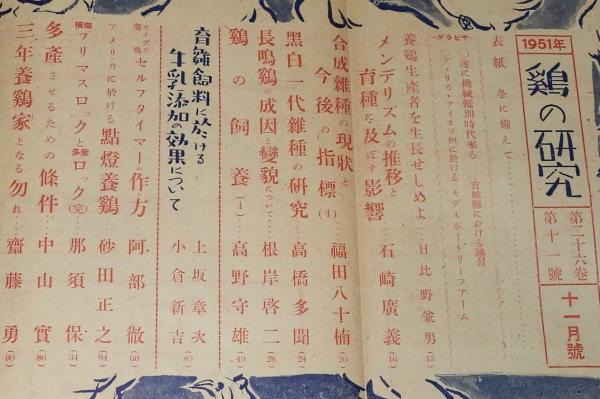 1951年
鷄の研究
第二十六巻
第十一號
十一月號
表紙 冬に備えて
グラビヤ
遂に機械鑑別時代來る
宮城縣における講習
アメリカ・アイオワ州に於けるモデルポートリーフアーム
養鷄生産者を生長せしめよ 日比野兼男 (15)
メンデリズムの推移と育種に及ぼす影響 石崎廣義 (16)
合成雜種の現狀と今後の指標 (4) 福田八十楠 (20)
黑白一代雜種の研究 高橋多聞 (24)
長鳴鷄の成因と變貌について 根岸啓二 (28)
鷄の飼養 (4) 高野守雄 (49)
育雛飼料に於ける牛乳添加の効果について
上坂章次
小倉新吉 (80)
セルフタイマーの作方 阿部徹 (60)
アメリカに於ける點燈養鷄 砂田正之 (94)
橫斑プリマスロックと多產ロック(完) 那須保 (34)
多產させるための條件 中山實 (86)
三年養鷄家となる勿れ 齋藤勇 (90)